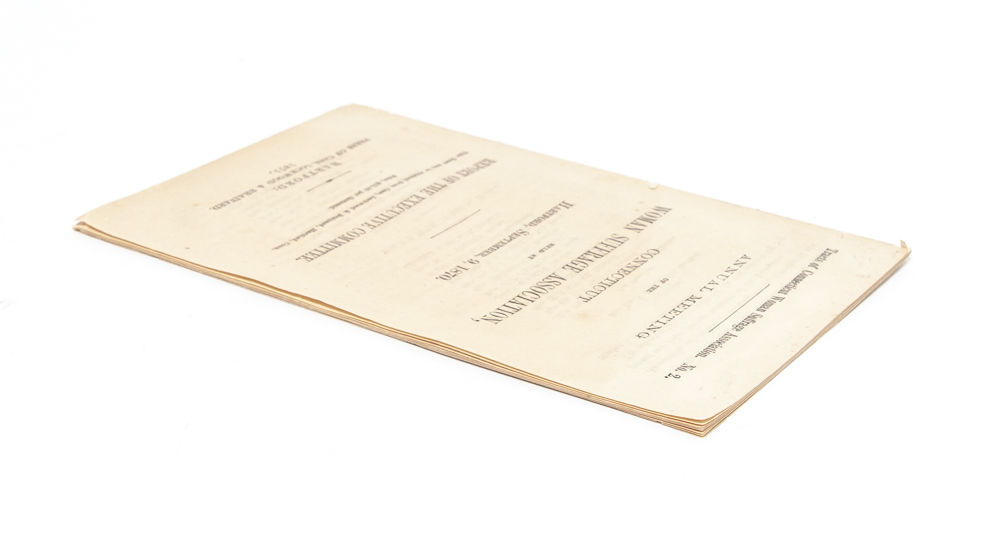 Tracts of Connecticut Woman Suffrage Association. No. 2.
ANNUAL MEETING
OF THE
CONNECTICUT
WOMAN SUFFRAGE ASSOCIATION,
HELD AT
HARTFORD, SEPTEMBER 9, 1870.
REPORT OF THE EXECUTIVE COMMITTEE.
HARTFORD:
PRESS OF CASE, LOCKWOOD & BRAINARD.
1871.